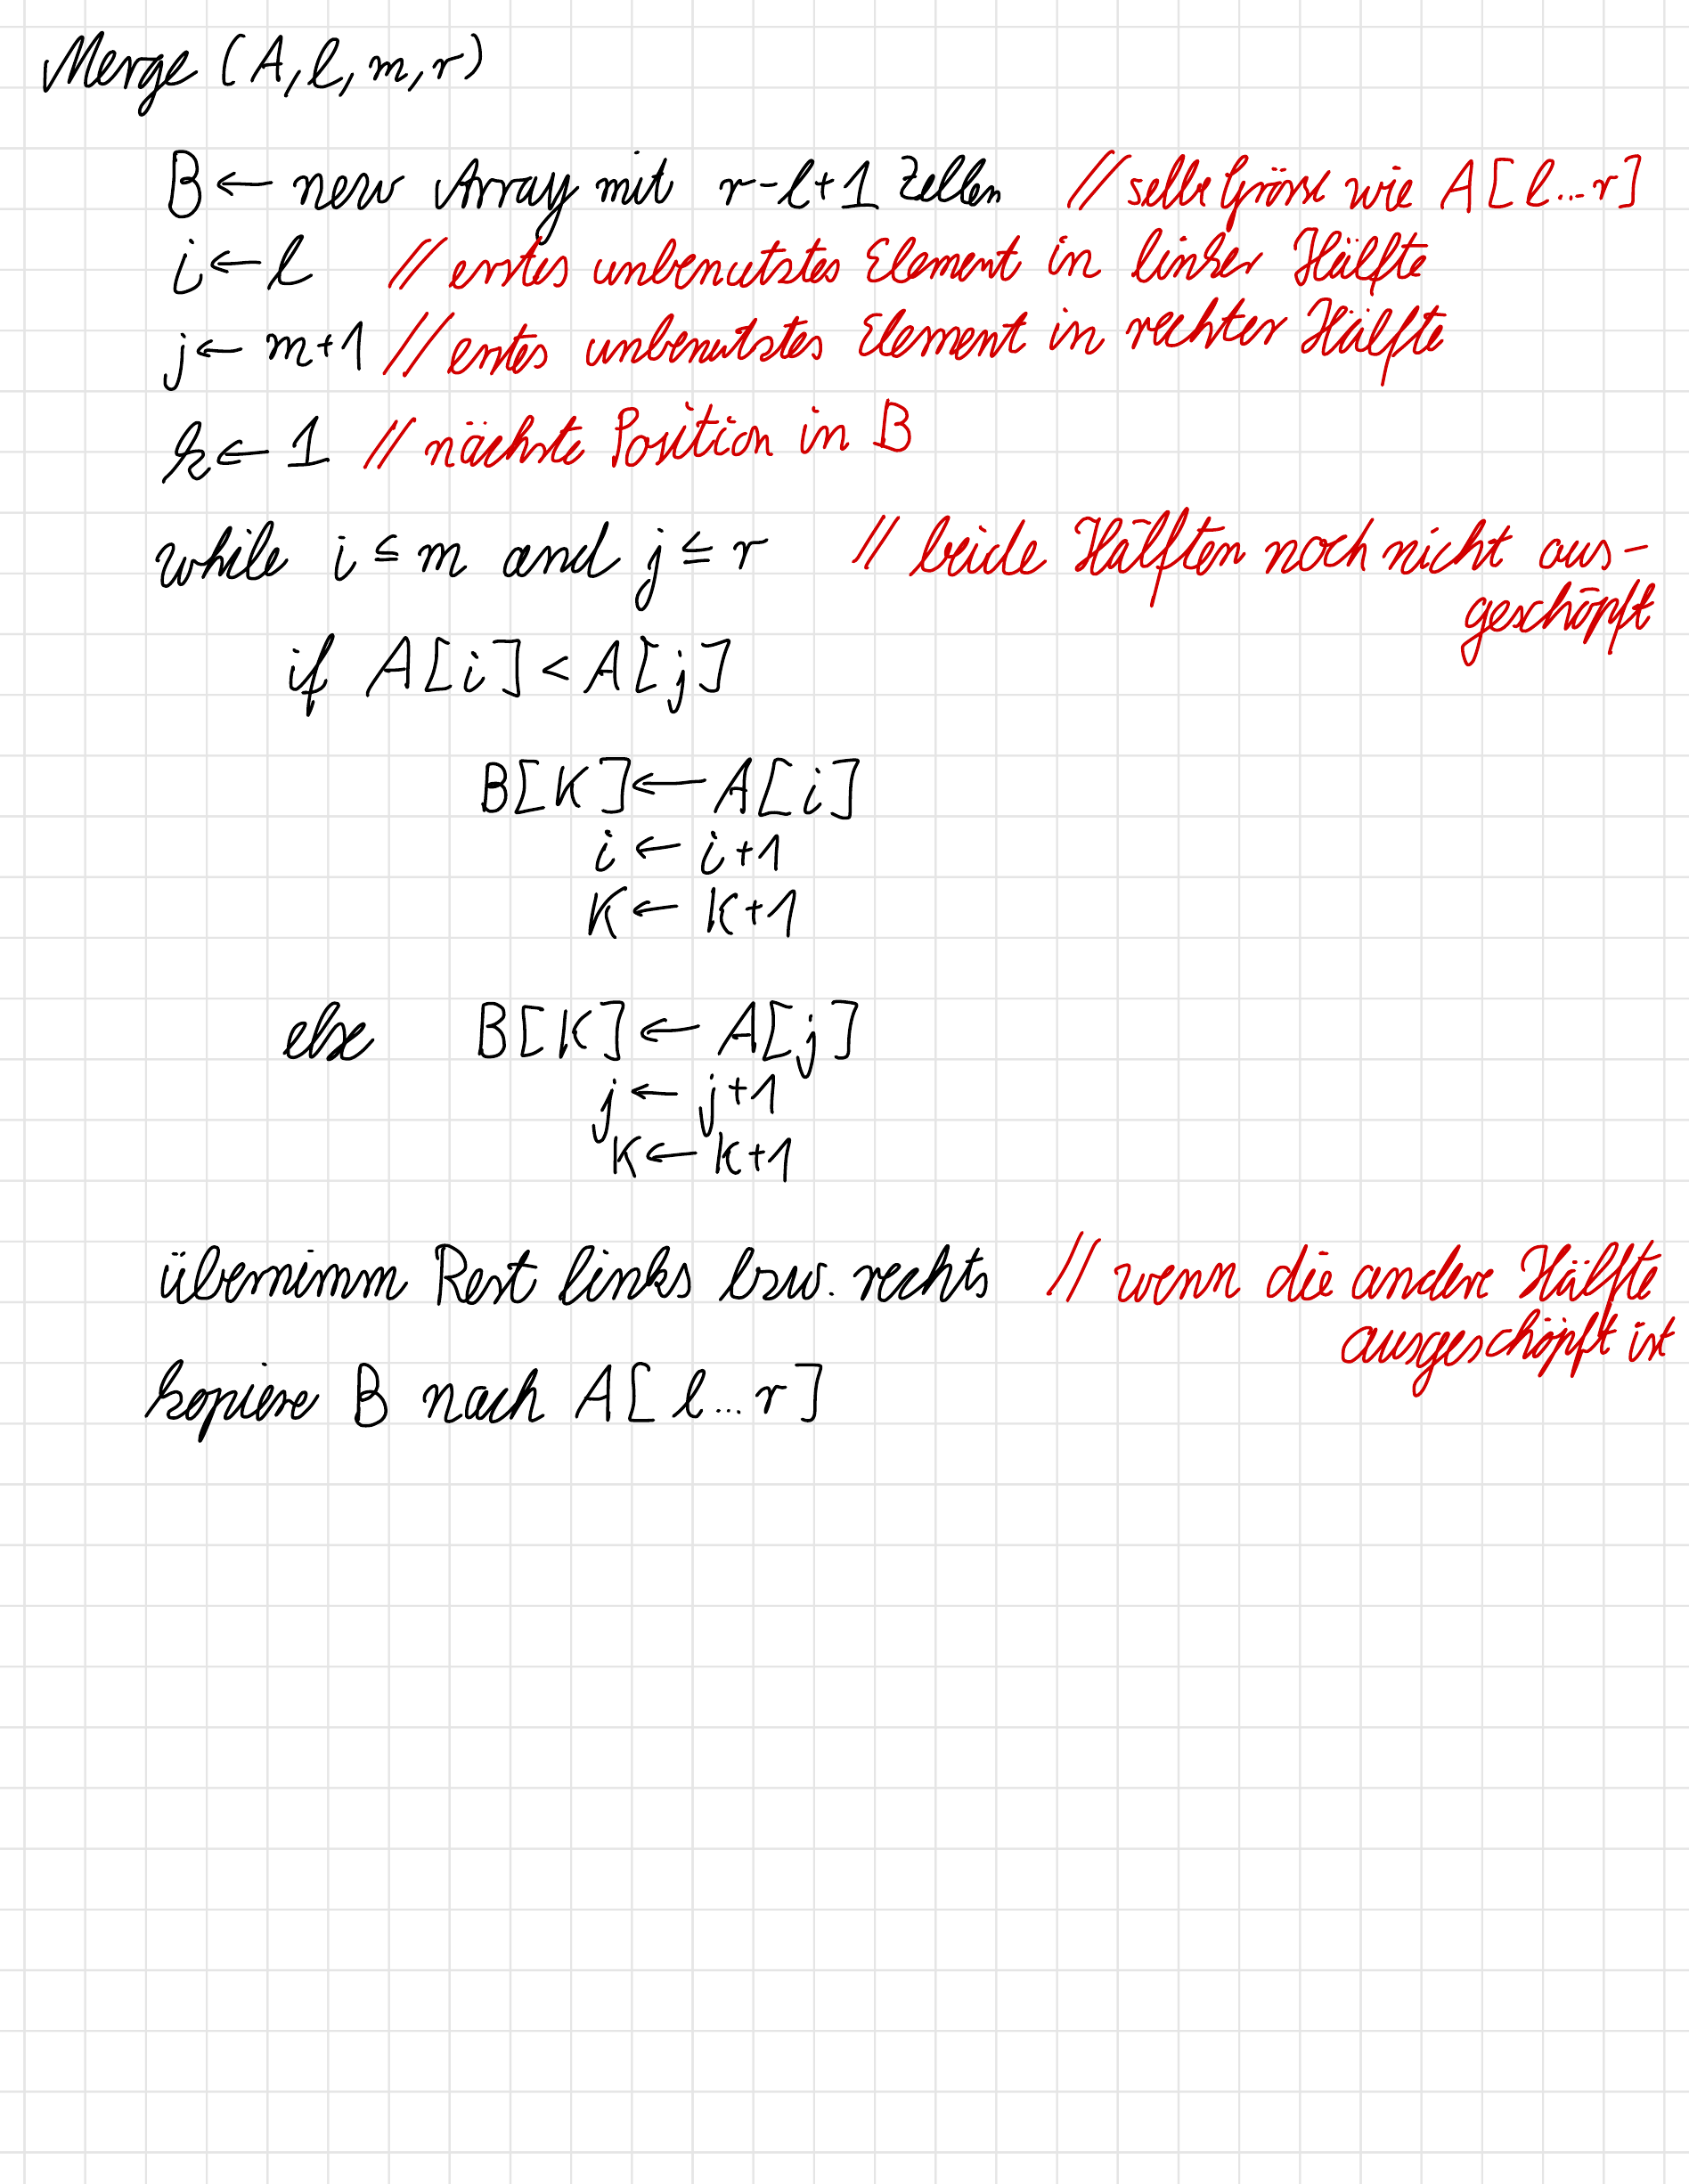 Merge (A, l, m, r)
B ← new Array mit r-l+1 Zellen // selbe Grösse wie A[l...r]
i ← l // erstes unbenutztes Element in linker Hälfte
j ← m+1 // erstes unbenutztes Element in rechter Hälfte
k ← 1 // nächste Position in B
while i ≤ m and j ≤ r // beide Hälften noch nicht aus-
geschöpft
if A[i] < A[j]
B[K] ← A[i]
i ← i+1
K ← K+1
else B[K] ← A[j]
j ← j+1
K ← K+1
übernimm Rest links bzw. rechts // wenn die andere Hälfte
ausgeschöpft ist
kopiere B nach A[l...r]